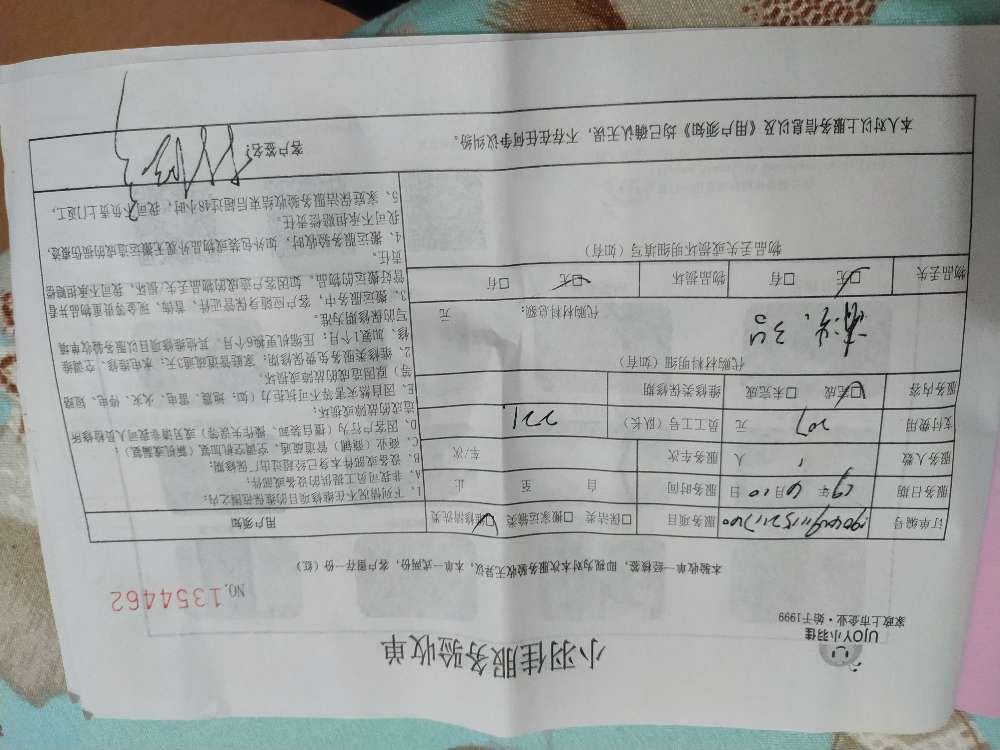 UJOY小羽佳
家政上市企业·始于1999
小羽佳服务验收单
NO.1354462
本验收单一经核签,即视为对本次服务验收无异议,本单一式两份,客户留存一份(红)
订单编号
服务项目 □保洁类 □搬家运输类 ☑维修清洗类
服务日期 19年6月10日 服务时间 自 至 止
服务人数 1 人 服务车次 车/次
支付费用 207 元 员工工号(队长) 221
服务内容 ☑完成 □未完成 维修类保修期
代购材料明细(如有)
代购材料总额: 元
物品丢失 ☑无 □有 物品损坏 ☑无 □有
物品丢失或损坏明细填写(如有)
用户须知
1、下列情况不在维修项目的维保范围之内:
A、非我司员工提供的设备或部件;
B、设备或部件本身已经超过出厂保修期;
C、商业(商铺)管道疏通、空调空机加装(新机或漏氟);
D、因客户行为(擅自装卸、操作失误等)或另请非我司人员检修所
造成的故障或损坏;
E、因自然灾害等不可抗拒力(如:地震、雷电、火灾、停电、短路
等)原因造成的故障或损坏。
2、维修类服务免费保修期:家庭管道疏通3天;水电维修、空调维
修、加氟1个月;压缩机更换6个月,其他维修项目以服务验收单填
写的保修期为准。
3、搬运服务中,客户应随身保管证件、首饰、现金等贵重物品并看
管好搬运的物品,如因客户造成的物品丢失、损坏,我司不承担赔偿
责任。
4、搬运服务验收时,如外包装或物品外观无搬运造成的损伤痕迹,
我司不承担赔偿责任。
5、家庭保洁服务验收结束后超过48小时,我司不负责上门返工。
本人对以上服务信息以及《用户须知》均已确认无误,不存在任何争议纠纷。
客户签名: